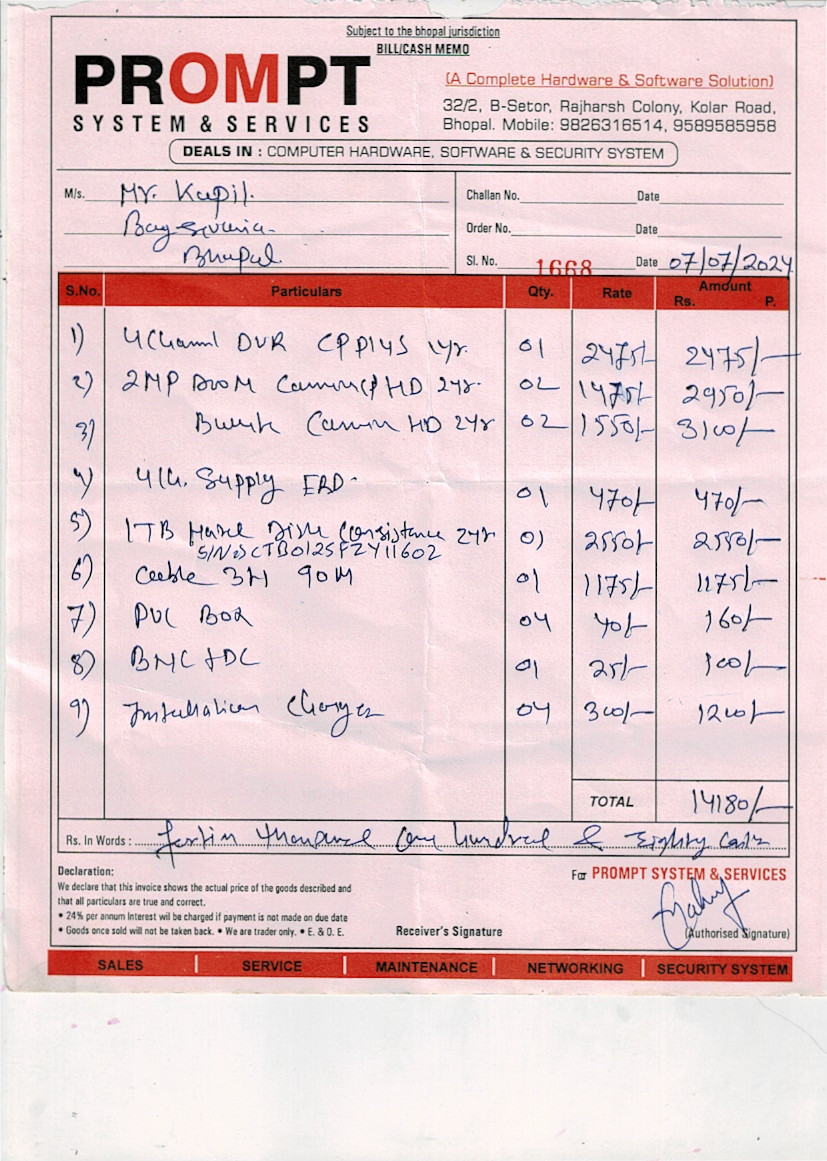 Subject to the bhopal jurisdiction
BILL/CASH MEMO
PROMPT
SYSTEM & SERVICES
(A Complete Hardware & Software Solution)
32/2, B-Setor, Rajharsh Colony, Kolar Road,
Bhopal. Mobile: 9826316514, 9589585958
DEALS IN : COMPUTER HARDWARE, SOFTWARE & SECURITY SYSTEM
M/s. Mr. Kapil.
Bhopal.
Challan No. Date
Order No. Date
Sl. No. 1668 Date 07/07/2024
S.No. Particulars Qty. Rate Amount
Rs. P.
1) 4 DVR 1yr. 01 2475/- 2475/-
2) 2MP HD 2yr. 02 1475/- 2950/-
3) HD 2yr 02 1550/- 3100/-
4) Supply ERD 01 470/- 470/-
5) 1TB Hard Disk 2yr 01 2550/- 2550/-
6) 90M 01 1175/- 1175/-
7) PVC BOX 04 40/- 160/-
8) BNC + DC 01 25/- 100/-
9) Installation Charges 04 300/- 1200/-
TOTAL 14180/-
Rs. In Words : thousand One hundred & Eighty
Declaration:
We declare that this invoice shows the actual price of the goods described and
that all particulars are true and correct.
• 24% per annum Interest wil be charged if payment is not made on due date
• Goods once sold will not be taken back. • We are trader only. • E. & O. E.
Receiver's Signature
For PROMPT SYSTEM & SERVICES
(Authorised Signature)
SALES | SERVICE | MAINTENANCE | NETWORKING | SECURITY SYSTEM